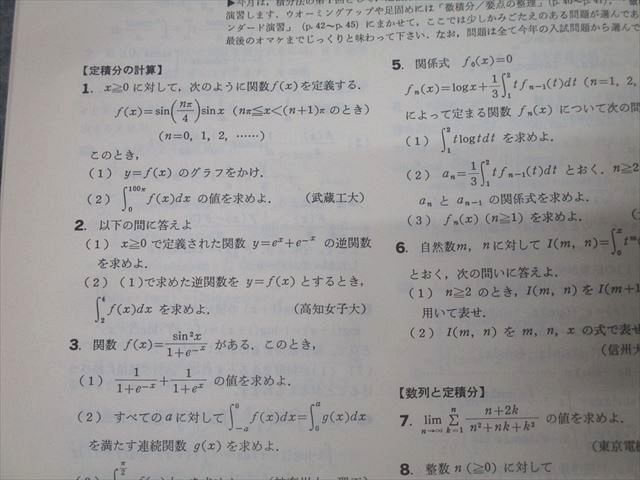 ▶今月は,積分法の第1回とし
演習します.ウオーミングアップや足固めには「微積分/要点の整理」(p.40~p.41),
ンダード演習」(p.42~p.45)にまかせて,ここでは少しかみごたえのある問題が選んであ
最後のオマケまでじっくりと味わって下さい.なお,問題は全て今年の入試問題から選んで
【定積分の計算】
1. x≧0 に対して,次のように関数 f(x) を定義する.
f(x)=sin(nπ/4)sin x (nπ≦x<(n+1)π のとき)
(n=0, 1, 2, ……)
このとき,
(1) y=f(x) のグラフをかけ.
(2) ∫_0^{100π} f(x)dx の値を求めよ. (武蔵工大)
2. 以下の問に答えよ
(1) x≧0 で定義された関数 y=e^x+e^{-x} の逆関数
を求めよ.
(2) (1)で求めた逆関数を y=f(x) とするとき,
∫_2^4 f(x)dx を求めよ. (高知女子大)
3. 関数 f(x)=sin²x/(1+e^{-x}) がある.このとき,
(1) 1/(1+e^{-x})+1/(1+e^x) の値を求めよ.
(2) すべての a に対して ∫_{-a}^0 f(x)dx=∫_0^a g(x)dx
を満たす連続関数 g(x) を求めよ.
5. 関係式 f_0(x)=0
f_n(x)=log x+1/3∫_1^2 t f_{n-1}(t)dt (n=1, 2,
によって定まる関数 f_n(x) について次の問
(1) ∫_1^2 t log t dt を求めよ.
(2) a_n=1/3∫_1^2 t f_{n-1}(t)dt とおく.n≧2
a_n と a_{n-1} の関係式を求めよ.
(3) f_n(x) (n≧1) を求めよ.
6. 自然数 m, n に対して I(m, n)=∫_0^x t^m
とおく,次の問いに答えよ.
(1) n≧2 のとき,I(m, n) を I(m+1
用いて表せ.
(2) I(m, n) を m, n, x の式で表せ
(信州大
【数列と定積分】
7. lim_{n→∞} Σ_{k=1}^n (n+2k)/(n²+nk+k²) の値を求めよ.
(東京電機
8. 整数 n (≧0) に対して